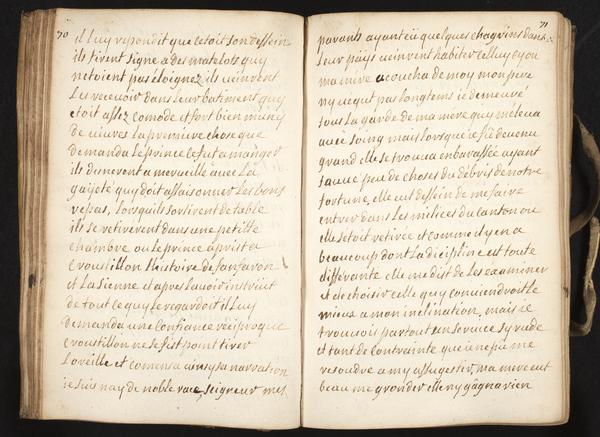 70
il luy repondit que cetoit son dessein
ils firent signe a des matelots quy
netoient pas éloignez ils veinrent
les recevoir dans leur batiment quy
etoit assez comode et fort bien muny
de vivres la premiere chose que
demanda le prince ce fut a manger
ils dinerent a merveille avec la
gaijeté quy doit assaisonner les bons
repas, lorsquils sortirent de table
ils se retirerent dans une petitte
chambre ou le prince aprist a
Croustillon lhistoire de fanfaron
et la sienne et apres lavoir instruit
de tout ce quy le regardoit il luy
demanda une confiance reciproque
croustillon ne se fist point tirer
loreille et comensa ainsy sa narration
ie suis nay de noble race, seigneur mes
71
parants ayant eü quelques chagrins dans
leur païs veinrent habiter celluy cy ou
ma mere acoucha de moy mon pere
ny vequt pas longtems ie demeuré
sous la garde de ma mere quy méleva
avec soing mais lorsque ie fü devenu
grand elle se trouva embarassée ayant
sauvé peu de choses du debris de notre
fortune, elle eut dessein de me faire
entrer dans les milices du canton ou
elle setoit retirée et comme il y en a
beaucoup dont la dicipline est toute
différante elle me dist de les examiner
et de choisir celle quy conviendroit le
mieux a mon inclination, mais ie
trouvois partout un service sy rude
et tant de contrainte que ie ne pü me
resoudre a my assugestir, ma mere eut
beau me gronder elle ny gagna rien